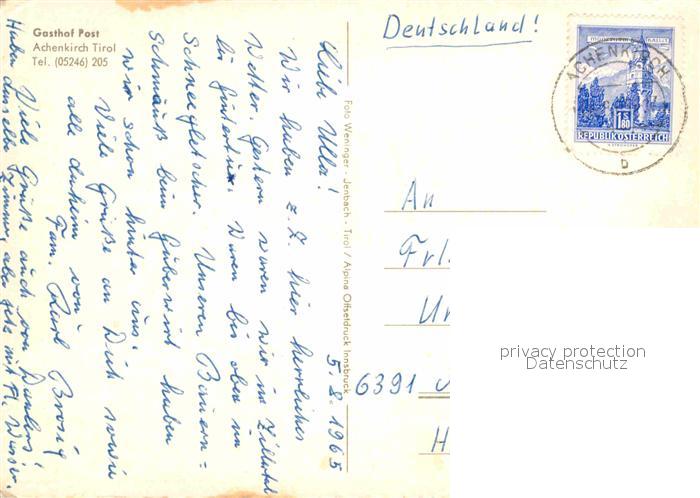 Gasthof Post
Achenkirch Tirol
Tel. (05246) 205
5.8.1965
Liebe Ulla!
Wir haben z. Z. hier herrliches
Wetter. Gestern waren wir im Zillertal
in Hintertux. Waren bis oben im
Schneegletscher. Unseren Bauern=
Schmauß beim Huberwirt haben
wir schon hinter uns.
Viele Grüße an Dich sowie
alle daheim von
Fam. Karl Brosig
Viele Grüße auch von
Haben dasselbe Zimmer, aber jetzt mit fl. Wasser.
Foto Weninger - Jenbach - Tirol / Alpina Offsetdruck Innsbruck
Deutschland!
ACHENKIRCH
b
1.80 S
REPUBLIK ÖSTERREICH
An
Frl.
6391
H
privacy protection
Datenschutz